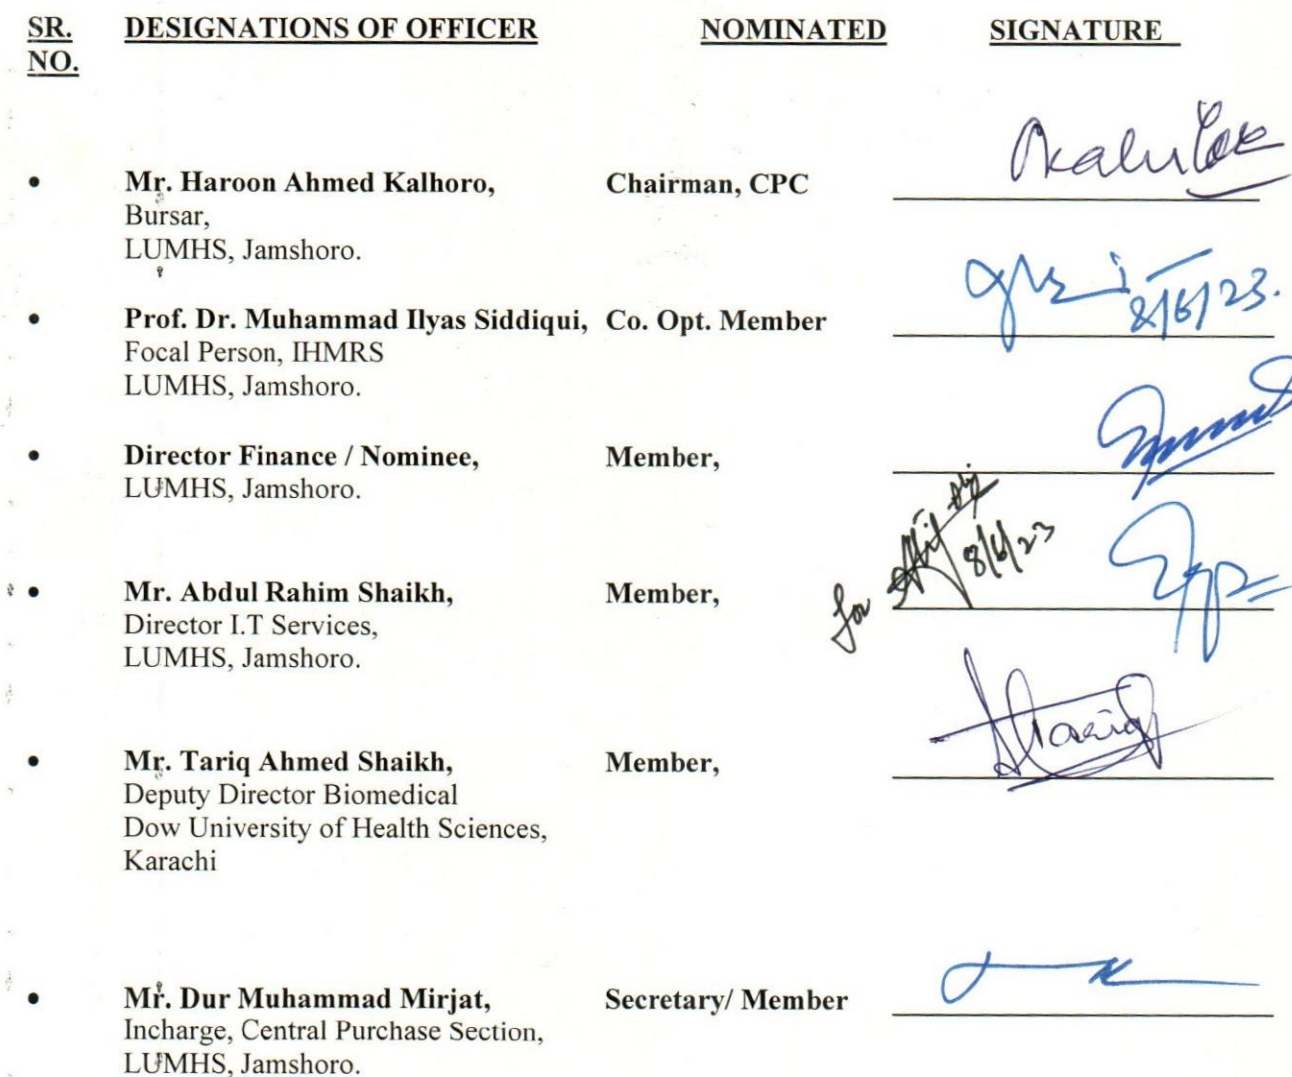 SR. DESIGNATIONS OF OFFICER NOMINATED SIGNATURE
NO.
• Mr. Haroon Ahmed Kalhoro, Chairman, CPC
Bursar,
LUMHS, Jamshoro.
8/6/23.
• Prof. Dr. Muhammad Ilyas Siddiqui, Co. Opt. Member
Focal Person, IHMRS
LUMHS, Jamshoro.
• Director Finance / Nominee, Member,
LUMHS, Jamshoro.
8/6/23
for
• Mr. Abdul Rahim Shaikh, Member,
Director I.T Services,
LUMHS, Jamshoro.
• Mr. Tariq Ahmed Shaikh, Member,
Deputy Director Biomedical
Dow University of Health Sciences,
Karachi
• Mr. Dur Muhammad Mirjat, Secretary/ Member
Incharge, Central Purchase Section,
LUMHS, Jamshoro.